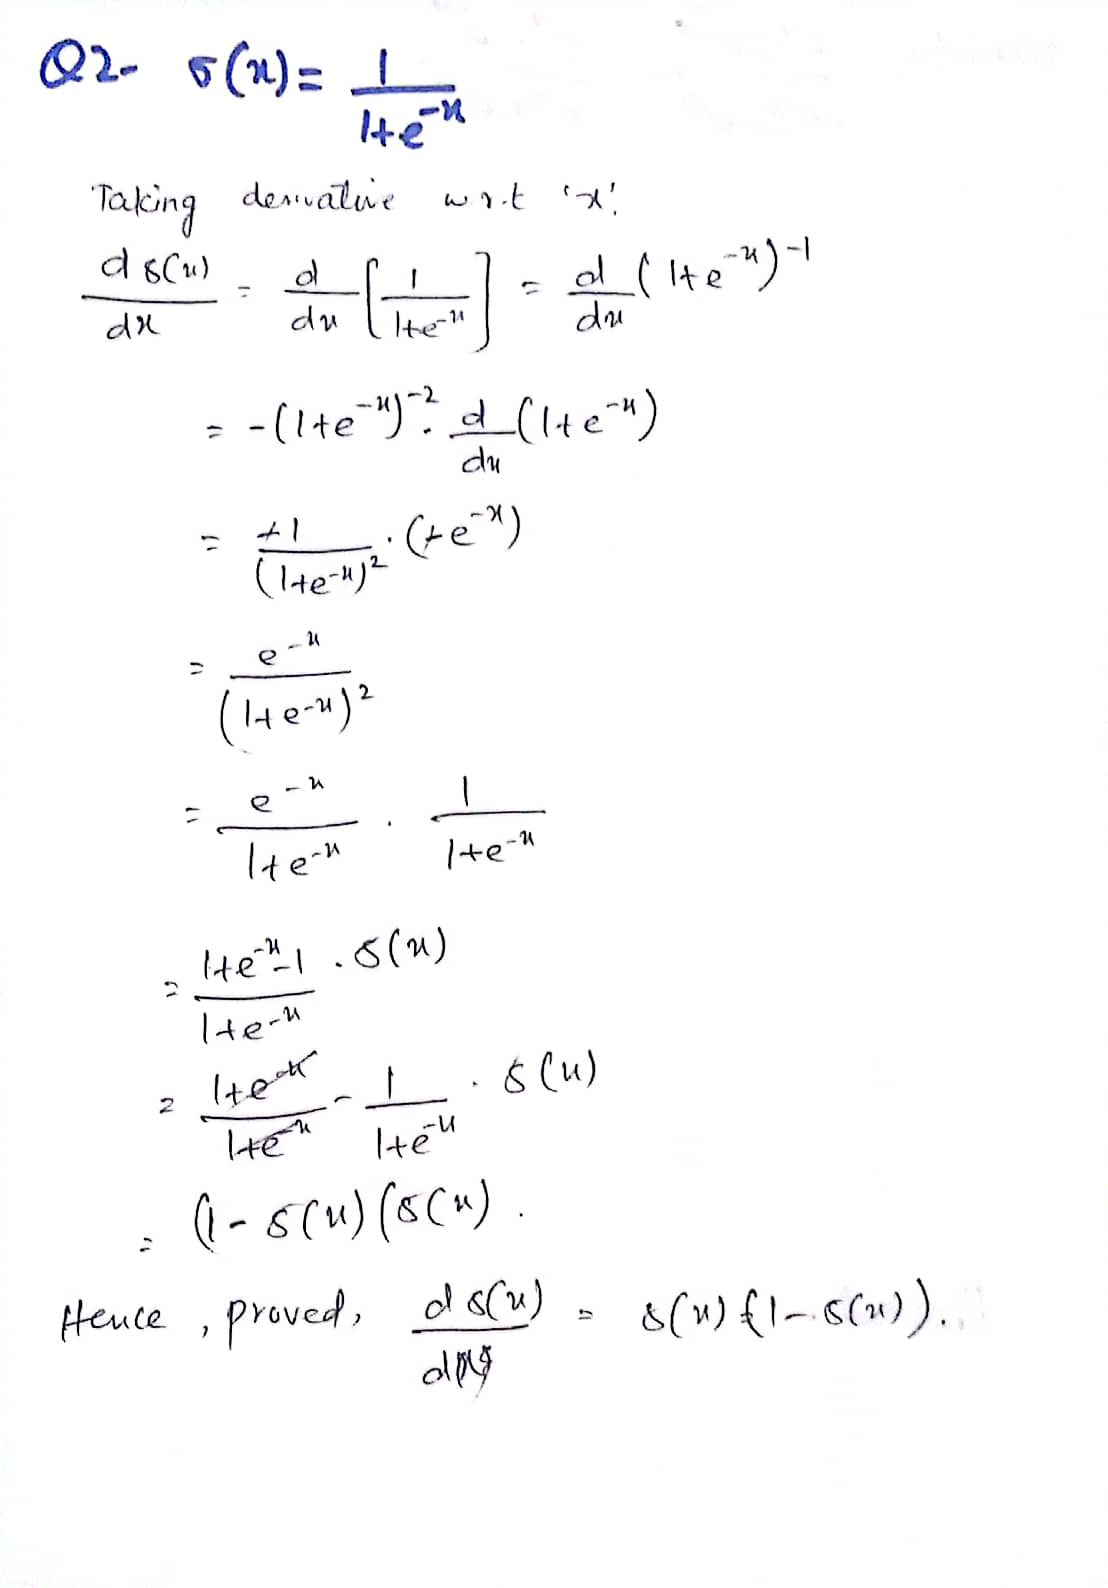 Q2- σ(x) = 1/(1+e^-x)
Taking derivative w.r.t 'x'.
dσ(x)/dx = d/dx [1/(1+e^-x)] = d/dx (1+e^-x)^-1
= -(1+e^-x)^-2 . d/dx (1+e^-x)
= +1/(1+e^-x)^2 . (+e^-x)
= e^-x/(1+e^-x)^2
= e^-x/(1+e^-x) . 1/(1+e^-x)
= (1+e^-x-1)/(1+e^-x) . σ(x)
= (1+e^-x)/(1+e^-x) - 1/(1+e^-x) . σ(x)
= (1-σ(x) (σ(x) .
Hence , proved, dσ(x)/dx = σ(x) (1-σ(x)).